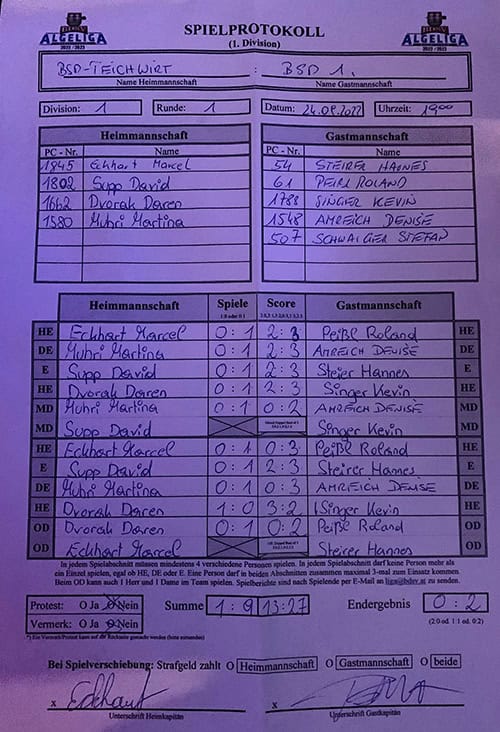 ALGELIGA SPIELPROTOKOLL ALGELIGA
2022 / 2023 (1. Division) 2022 / 2023
BSD-TEICHWIRT : BSD 1.
Name Heimmannschaft Name Gastmannschaft
Division: 1 Runde: 1 Datum: 24.09.2022 Uhrzeit: 19 00
Heimmannschaft Gastmannschaft
PC - Nr. Name PC - Nr. Name
1845 Eckhart Marcel 54 STEIRER HANNES
1802 Supp David 61 PEIßL ROLAND
1662 Dvorak Daren 1788 SINGER KEVIN
1580 Muhri Martina 1548 AMREICH DENISE
507 SCHWAIGER STEFAN
Heimmannschaft Spiele Score Gastmannschaft
1:0 oder 0:1
HE Eckhart Marcel 0:1 2:3 Peißl Roland HE
DE Muhri Martina 0:1 2:3 AMREICH DENISE DE
E Supp David 0:1 2:3 Steirer Hannes E
HE Dvorak Daren 0:1 2:3 Singer Kevin HE
MD Muhri Martina 0:1 0:2 AMREICH DENISE MD
MD Supp David Singer Kevin MD
HE Eckhart Marcel 0:1 0:3 Peißl Roland HE
E Supp David 0:1 2:3 Steirer Hannes E
DE Muhri Martina 0:1 0:3 AMREICH DENISE DE
HE Dvorak Daren 1:0 3:2 Singer Kevin HE
OD Dvorak Daren 0:1 0:2 Peißl Roland OD
OD Eckhart Marcel Steirer Hannes OD
In jedem Spielabschnitt müssen mindestens 4 verschiedene Personen spielen. In jedem Spielabschnitt darf keine Person mehr als
ein Einzel spielen, egal ob HE, DE oder E. Eine Person darf in beiden Abschnitten zusammen maximal 3-mal zum Einsatz kommen.
Beim OD kann auch 1 Herr und 1 Dame im Team spielen. Spielberichte sind nach Spielende per E-Mail an liga@bdsv.at zu senden.
Protest: O Ja O Nein Summe 1:9 13:27 Endergebnis 0:2
Vermerk: O Ja O Nein (2:0 od. 1:1 od. 0:2)
*) Ein Vermerk/Protest kann auf der Rückseite gemacht werden (bitte zumerken)
Bei Spielverschiebung: Strafgeld zahlt O Heimmannschaft O Gastmannschaft O beide
x Eckhart x
Unterschrift Heimkapitän Unterschrift Gastkapitän